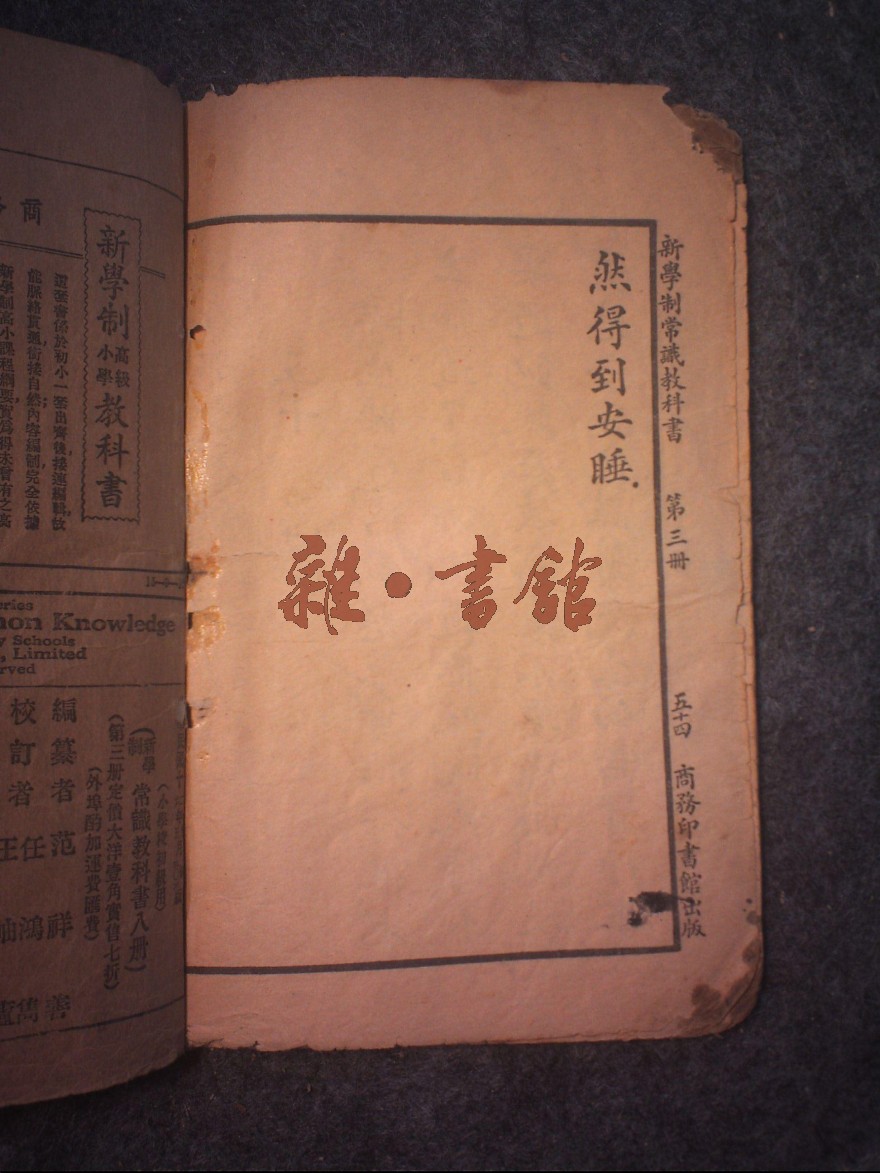 新學制常識教科書 第三冊 五十四 商務印書館出版
然得到安睡.
雜·書館
商
新學制高級小學教科書
能脈絡貫通銜接自然內容編制完全依據
mon Knowledge
Schools
, Limited
rved
編纂者 范祥善
校訂者 任鴻雋
王
(新學制)常識教科書八冊)
(第三冊定價大洋壹角實售七折)
(外埠酌加運費匯費)